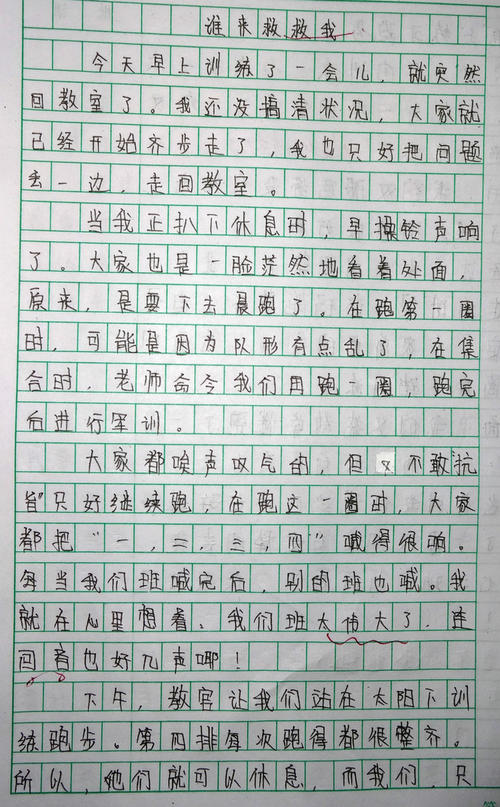 谁来救救我
今天早上训练了一会儿，就突然
回教室了。我还没搞清状况，大家就
已经开始齐步走了，我也只好把问题
丢一边，走回教室。
当我正扒下休息时，早操铃声响
了。大家也是一脸茫然地看着处面，
原来，是要下去晨跑了。在跑第一圈
时，可能是因为队形有点乱了，在集
合时，老师命令我们再跑一圈，跑完
后进行军训。
大家都唉声叹气的，但又不敢抗
旨"只好继续跑，在跑这一圈时，大家
都把"一，二，三，四"喊得很响。
每当我们班喊完后，别的班也喊。我
就在心里想着、我们班太伟大了，连
回音也好几声哪！
下午，教官让我们站在太阳下训
练跑步。第四排每次跑得都很整齐。
所以，她们就可以休息，而我们，只